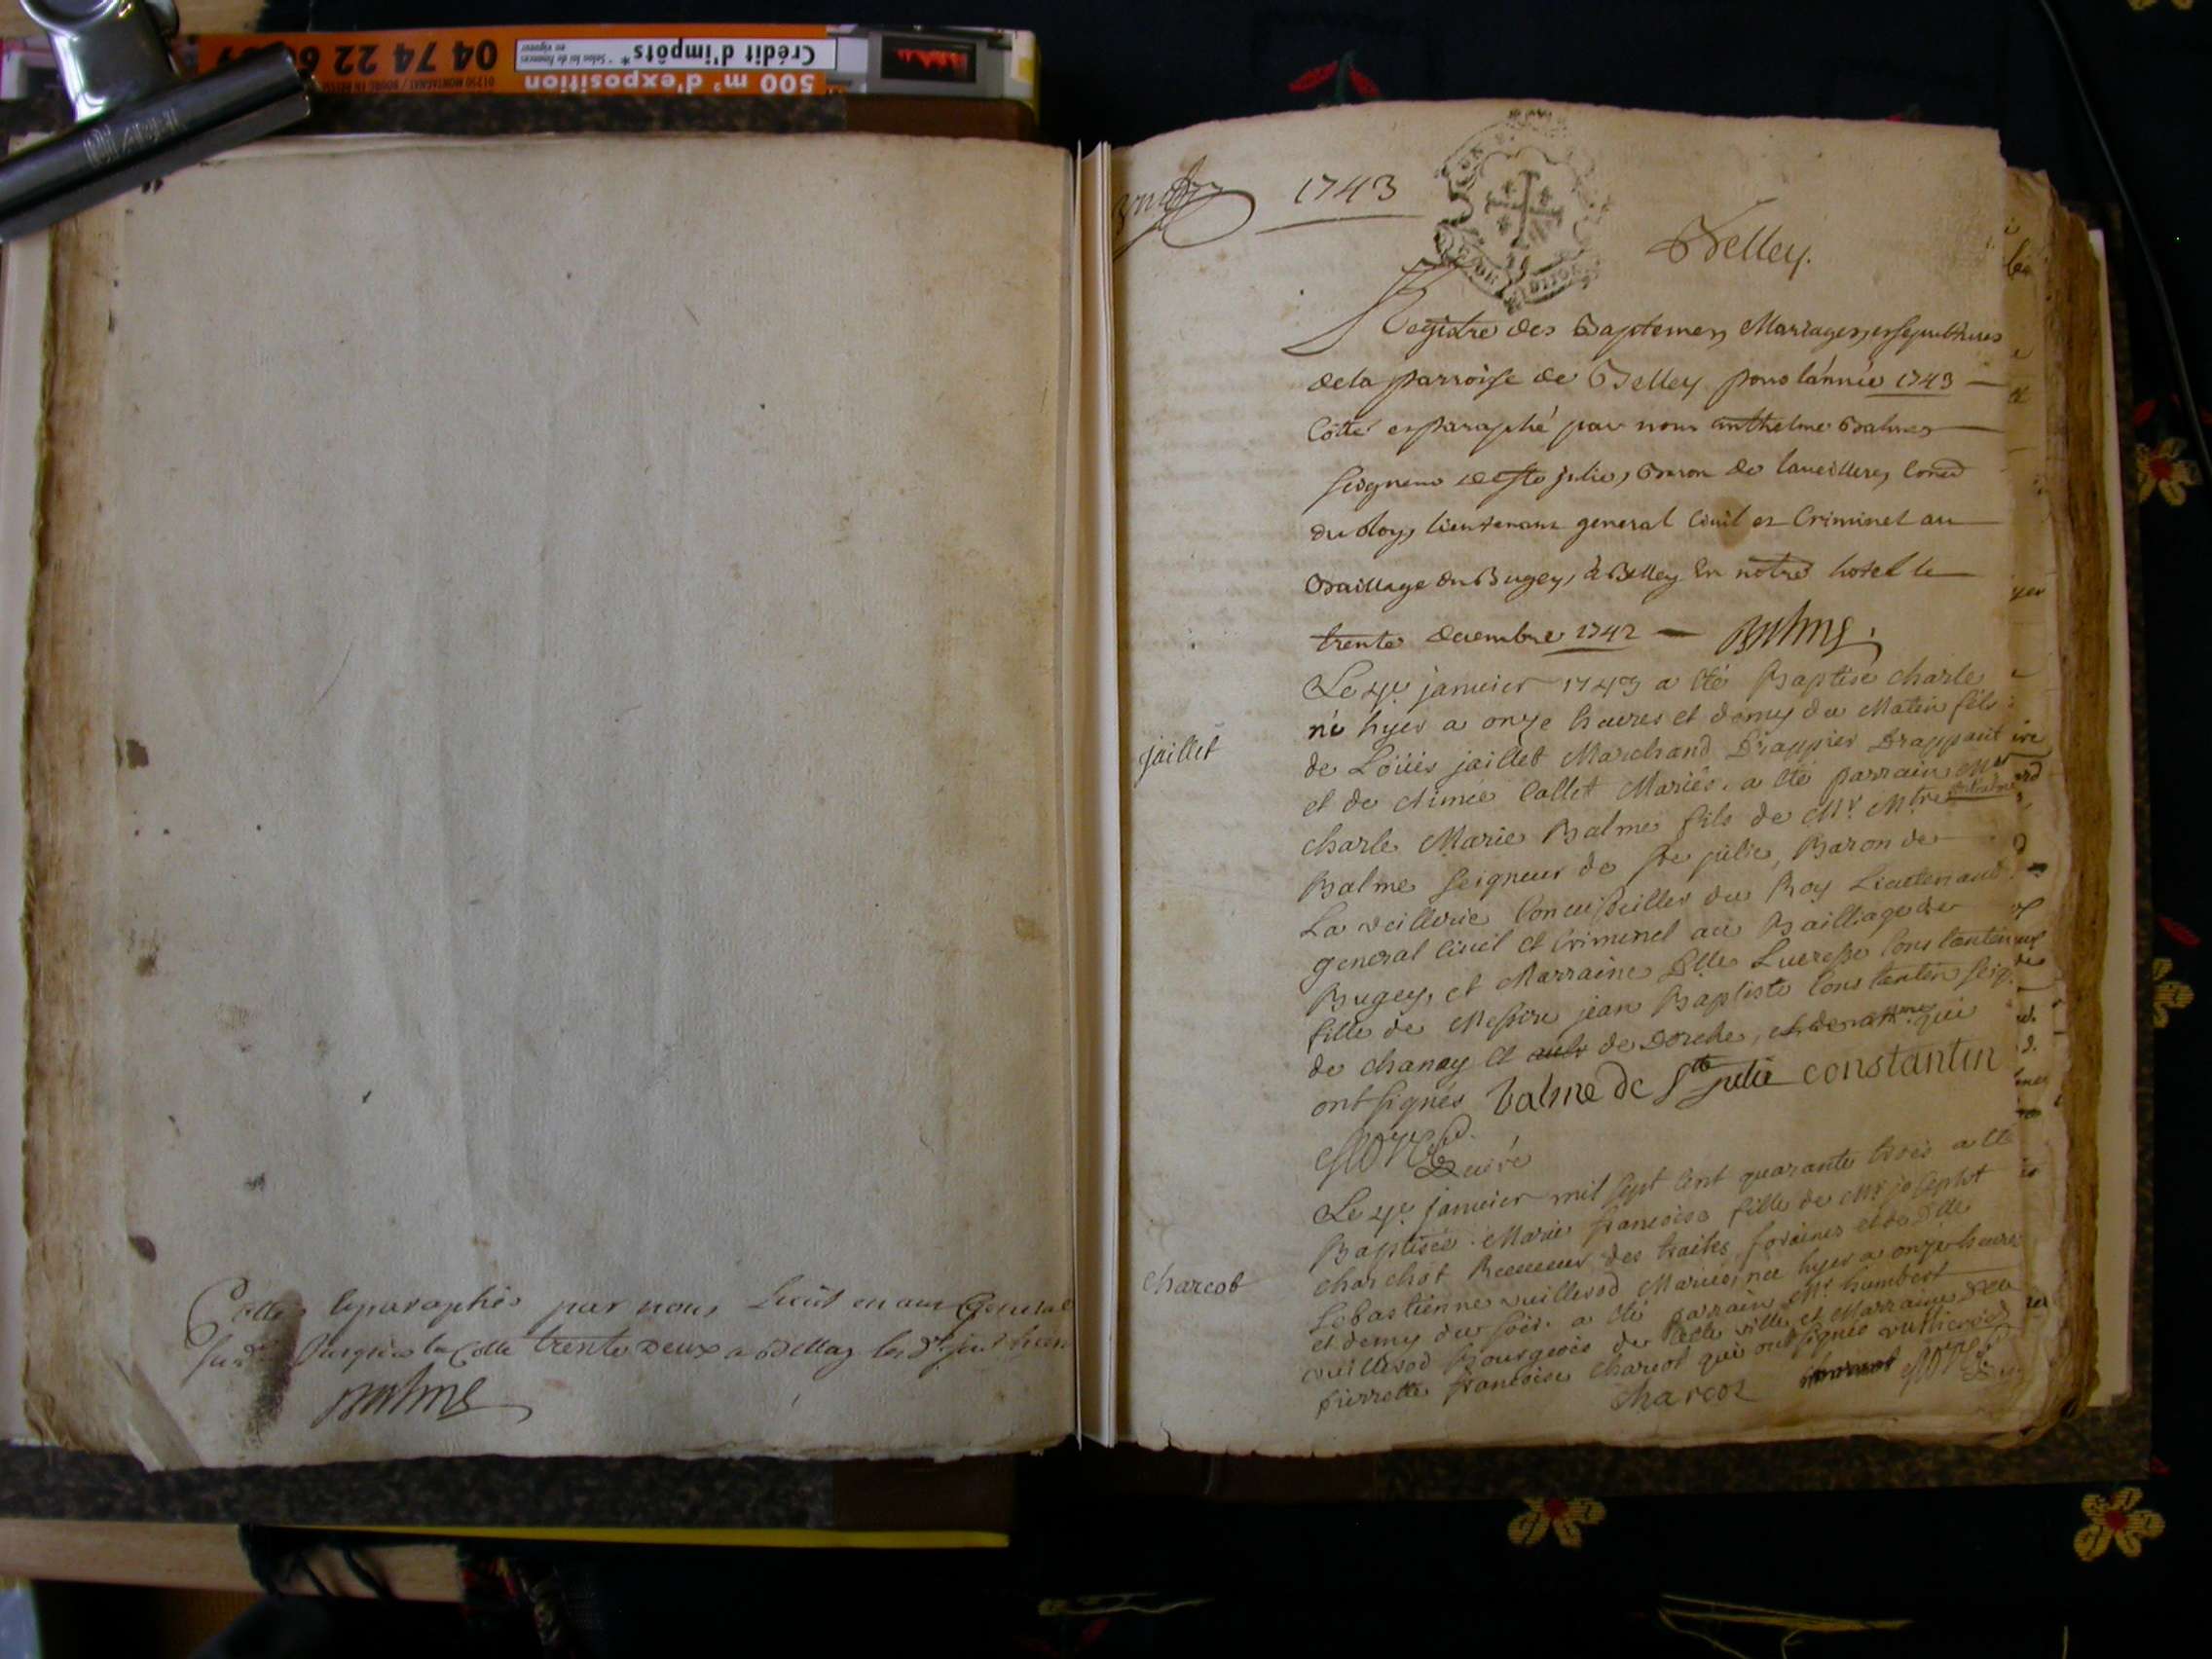 04 74 22 6
Crédit d'impôts*
* Selon loi de finances en vigueur
500 m² d'exposition
Cottés et paraphés par nous Lieut en aux General
Jusques la Cotte trente Deux a Belley les d jour
Balme
1743
Belley.
Registre des Baptemes, Mariages, et sepultures
de la parroisse de Belley pour l'année 1743
Cotté et paraphé par nous anthelme Balme
seigneur de ste julie, Baron de laveillere, Cons
du Roy, lieutenant general Civil et Criminel au
Baillage du Bugey, à Belley En notre hotel le
trente decembre 1742 — Balme.
Le 4e janvier 1743 a eté Baptisé charle
né hyer a onze heures et demy du Matin fils
jaillet
de Loüis jaillet Marchand Drappier Drappant
et de Aimée Callet Mariés. a eté parrain Mr
charle Marie Balme fils de Mr. Mtre anthelme
Balme seigneur de ste julie, Baron de
La veillerie Conceiseiller du Roy Lieutenand
general Civil et Criminel au Bailliage de
Bugey, et Marraine Dlle Lucresse Constantin
fille de Messire jean Baptiste Constantin seigr
de chanay et de Dorche, qui
ont signés balme de Ste julie constantin
Curé
Le 4e janvier mil sept cent quarante trois a eté
Baptisée Marie francoise fille de Mr josepht
charcot
charchot Receveur des traites foraines et de Dlle
Sebastienne vuillerod Mariés, née hyer a onze heures
et demy du soir. a eté parrain Mr. humbert
vuillerod Bourgeois de cette ville et Marraine Dlle
pierrette francoise charcot qui ont signés vuillierod
charcot